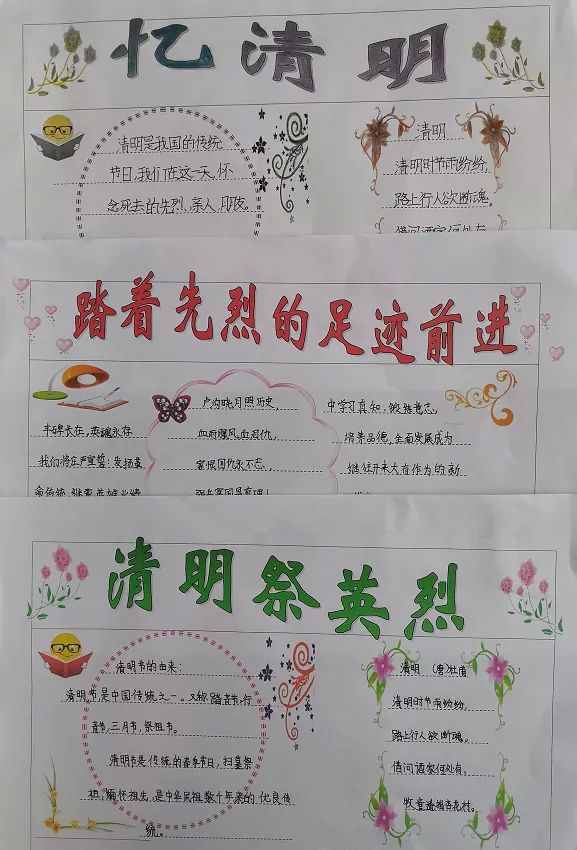 忆清明
清明是我国的传统
节日,我们在这一天,怀
念死去的先烈,亲人,朋友。
清明
清明时节雨纷纷,
路上行人欲断魂。
借问酒家何处有
踏着先烈的足迹前进
丰碑长在,英魂永存
我们将庄严宣誓:发扬革
卢沟晓月照历史,
血雨腥风血泪仇,
家恨国仇永不忘,
中学习真知:锻炼意志,
培养品德,全面发展成为
继往开来大有作为的新
清明祭英烈
清明节的由来:
清明节是中国传统之一。又称踏青节,行
青节,三月节,祭祖节。
清明节是传统的春季节日,扫墓祭
祖,缅怀祖先,是中华民族数千年来的优良传
统。
清明 (唐)杜甫
清明时节雨纷纷,
路上行人欲断魂。
借问酒家何处有。
牧童遥指杏花村。